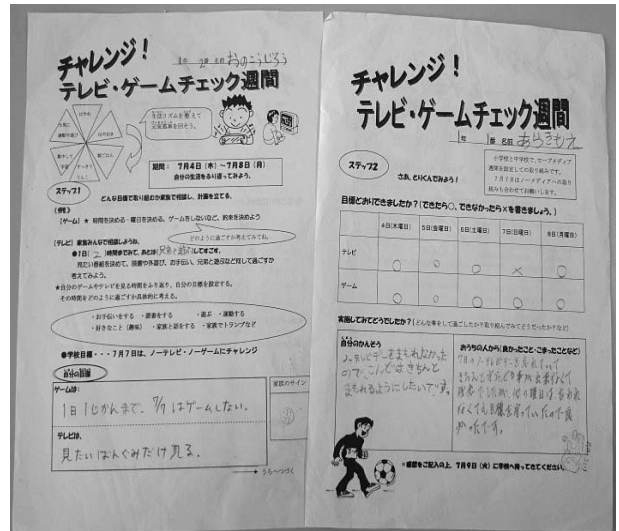 チャレンジ！
テレビ・ゲームチェック週間
1年 2番 名前 おのこうじろう
生活リズムを整えて
元気風車を回そう。
期間：7月4日（木）～7月8日（月）
自分の生活をふり返ってみよう。
ステップ1
どんな目標で取り組むか家族で相談し、計画を立てる。
《例》
【ゲーム】★ 時間を決める・曜日を決める、ゲームをしないなど、約束を決めよう
【テレビ】家族みんなで相談しようね。
どのように過ごすか考えてみてね。
●1日（2）時間までみて、あとは（兄弟と遊ぶ）してすごす。
見たい番組を決めて、読書や外遊び、お手伝い、兄弟と遊ぶなど何して過ごすか
考えてみよう。
★自分のゲームやテレビを見る時間をふり返り、自分の目標を設定する。
その時間をどのように過ごすか具体的に考える。
・お手伝いをする ・読書をする ・遊ぶ ・運動する
・好きなこと（趣味） ・家族と話をする ・家族でトランプなど
●学校目標・・・7月7日は、ノーテレビ・ノーゲームにチャレンジ
自分の目標
家族のサイン
ゲームは、
1日1じかんまで。7/7はゲームしない。
テレビは、
見たいばんぐみだけ見る。
うらへつづく
チャレンジ！
テレビ・ゲームチェック週間
1年 1番 名前 あらきもえ
ステップ2
さあ、とりくんでみよう！
小学校と中学校で、セーブメディア
週間を設定しての取り組みです。
7月7日はノーメディアへの取り
組みも合わせてお願いします。
目標どおりできましたか？（できたら○、できなかったら×を書きましょう。）
4日（木曜日） 5日（金曜日） 6日（土曜日） 7日（日曜日） 8日（月曜日）
テレビ ○ ○ ○ × ○
ゲーム ○ ○ ○ ○ ○
実施してみてどうでしたか？（どんな事をして過ごしたか？取り組んでみてどうだったか？など）
自分のかんそう
ノーテレビデーをまもれなかった
ので、こんどはきちんと
まもれるようにしたいです。
おうちの人から（良かったこと・こまったことなど）
7日のノーテレビデーを忘れていて
残念でしたが、他の曜日は、言われ
なくても目標を守っていたので良
かったです。
※感想をご記入の上、7月9日（火）に学校へ持ってきてください。